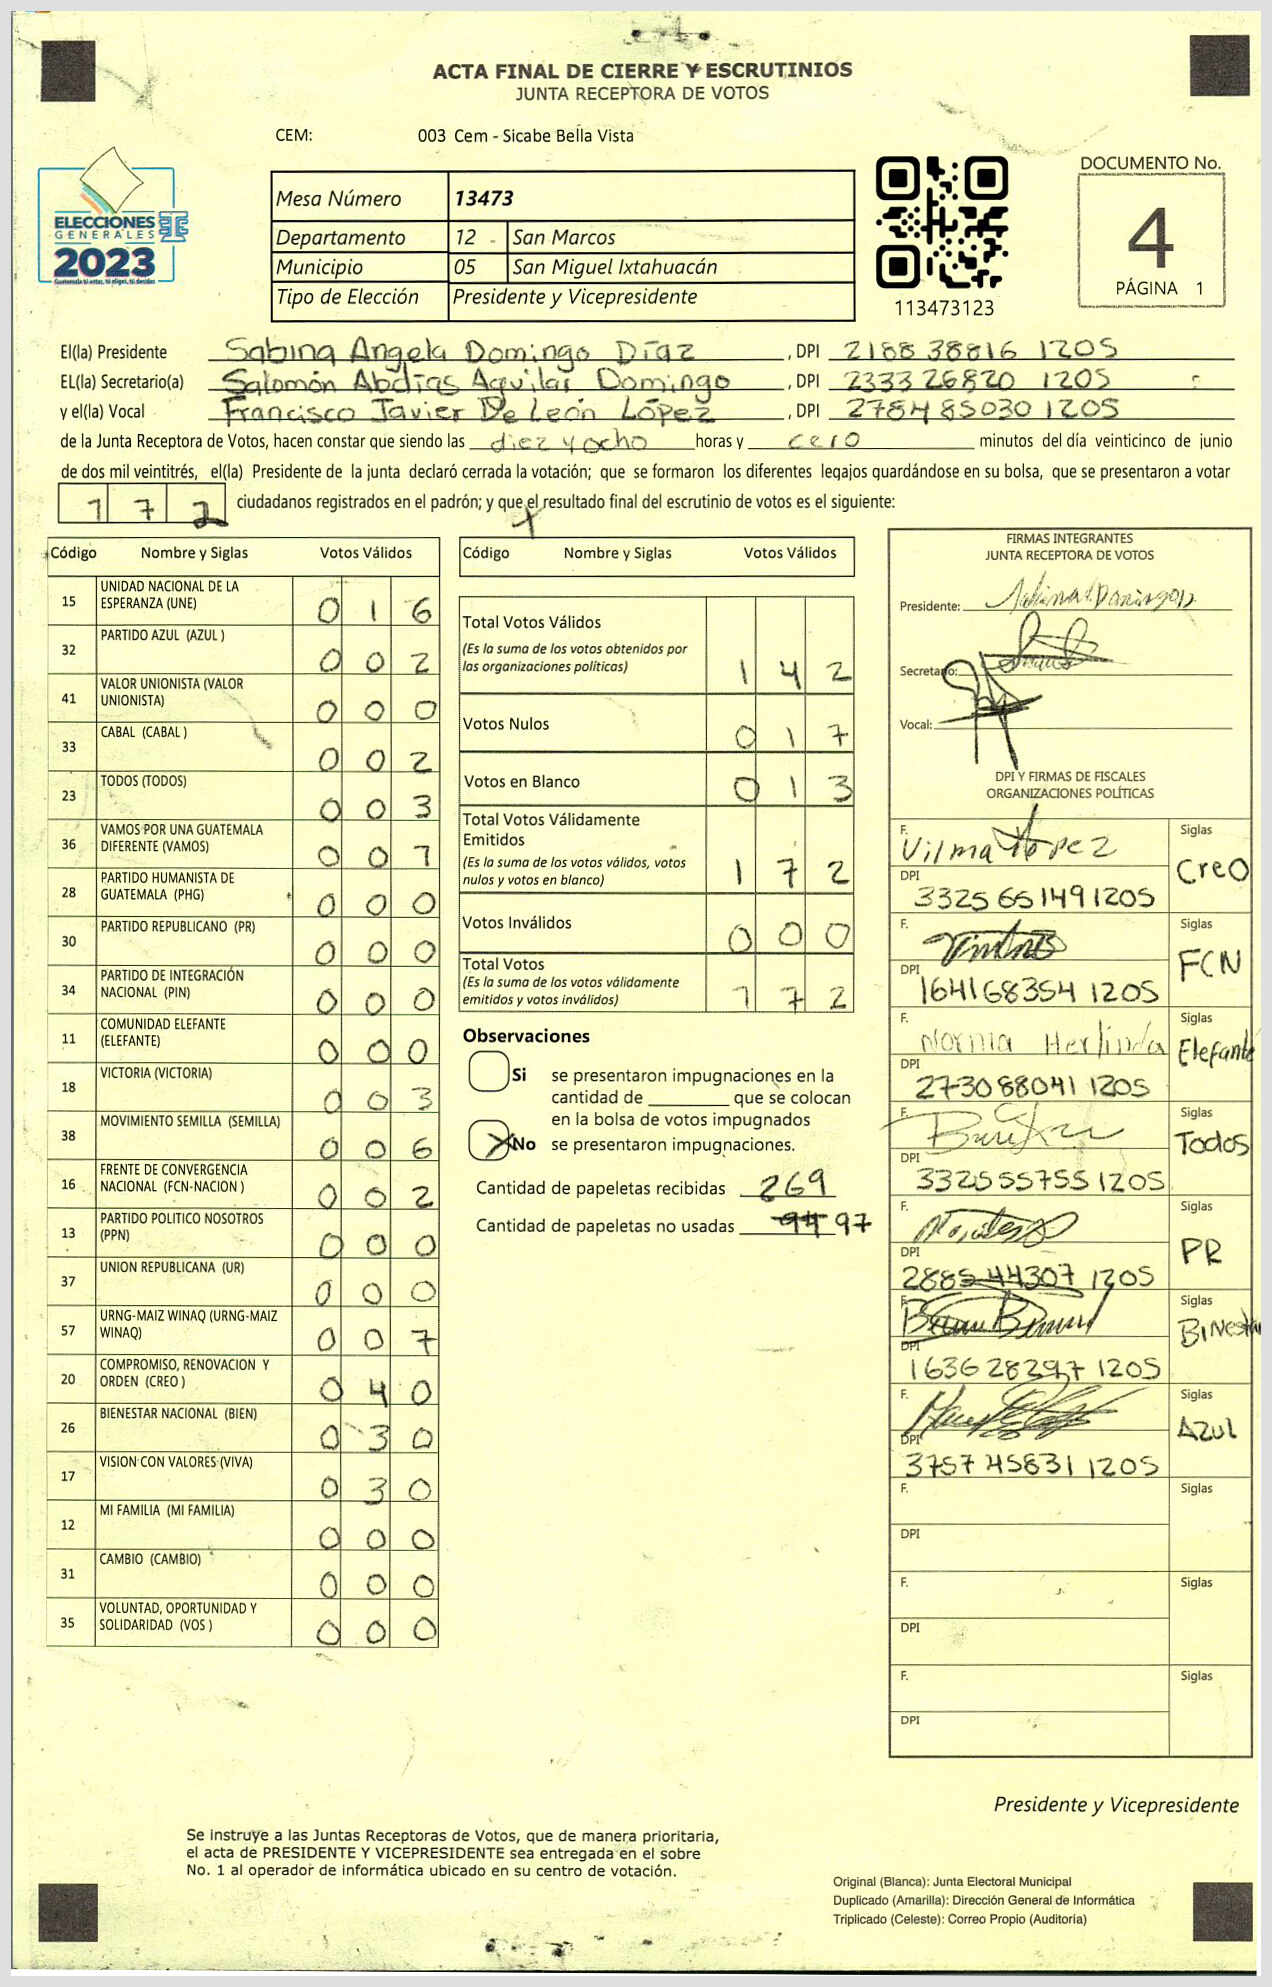 ACTA FINAL DE CIERRE Y ESCRUTINIOS
JUNTA RECEPTORA DE VOTOS
CEM: 003 Cem - Sicabe Bella Vista
ELECCIONES
GENERALES
2023
Guatemala tú votas, tú eliges, tú decides
Mesa Número 13473
Departamento 12 San Marcos
Municipio 05 San Miguel Ixtahuacán
Tipo de Elección Presidente y Vicepresidente
113473123
DOCUMENTO No.
4
PÁGINA 1
El(la) Presidente Sabina Angela Domingo Díaz, DPI 2188 38816 1205
EL(la) Secretario(a) Salomón Abdías Aguilar Domingo, DPI 2333 26820 1205
y el(la) Vocal Francisco Javier De León López, DPI 2784 85030 1205
de la Junta Receptora de Votos, hacen constar que siendo las diez y ocho horas y cero minutos del día veinticinco de junio
de dos mil veintitrés, el(la) Presidente de la junta declaró cerrada la votación; que se formaron los diferentes legajos guardándose en su bolsa, que se presentaron a votar
172 ciudadanos registrados en el padrón; y que el resultado final del escrutinio de votos es el siguiente:
Código Nombre y Siglas Votos Válidos
15 UNIDAD NACIONAL DE LA ESPERANZA (UNE) 0 1 6
32 PARTIDO AZUL (AZUL ) 0 0 2
41 VALOR UNIONISTA (VALOR UNIONISTA) 0 0 0
33 CABAL (CABAL ) 0 0 2
23 TODOS (TODOS) 0 0 3
36 VAMOS POR UNA GUATEMALA DIFERENTE (VAMOS) 0 0 1
28 PARTIDO HUMANISTA DE GUATEMALA (PHG) 0 0 0
30 PARTIDO REPUBLICANO (PR) 0 0 0
34 PARTIDO DE INTEGRACIÓN NACIONAL (PIN) 0 0 0
11 COMUNIDAD ELEFANTE (ELEFANTE) 0 0 0
18 VICTORIA (VICTORIA) 0 0 3
38 MOVIMIENTO SEMILLA (SEMILLA) 0 0 6
16 FRENTE DE CONVERGENCIA NACIONAL (FCN-NACION ) 0 0 2
13 PARTIDO POLITICO NOSOTROS (PPN) 0 0 0
37 UNION REPUBLICANA (UR) 0 0 0
57 URNG-MAIZ WINAQ (URNG-MAIZ WINAQ) 0 0 7
20 COMPROMISO, RENOVACION Y ORDEN (CREO ) 0 4 0
26 BIENESTAR NACIONAL (BIEN) 0 3 0
17 VISION CON VALORES (VIVA) 0 3 0
12 MI FAMILIA (MI FAMILIA) 0 0 0
31 CAMBIO (CAMBIO) 0 0 0
35 VOLUNTAD, OPORTUNIDAD Y SOLIDARIDAD (VOS ) 0 0 0
Código Nombre y Siglas Votos Válidos
Total Votos Válidos
(Es la suma de los votos obtenidos por
las organizaciones políticas) 1 4 2
Votos Nulos 0 1 7
Votos en Blanco 0 1 3
Total Votos Válidamente
Emitidos
(Es la suma de los votos válidos, votos
nulos y votos en blanco) 1 7 2
Votos Inválidos 0 0 0
Total Votos
(Es la suma de los votos válidamente
emitidos y votos inválidos) 1 7 2
Observaciones
Si se presentaron impugnaciones en la
cantidad de ________ que se colocan
en la bolsa de votos impugnados
X No se presentaron impugnaciones.
Cantidad de papeletas recibidas 269
Cantidad de papeletas no usadas 97
FIRMAS INTEGRANTES
JUNTA RECEPTORA DE VOTOS
Presidente:
Secretario:
Vocal:
DPI Y FIRMAS DE FISCALES
ORGANIZACIONES POLÍTICAS
F. Vilma López Siglas CreO
DPI 3325 65149 1205
F. Siglas FCN
DPI 1641 68354 1205
F. Norma Herlinda Siglas Elefante
DPI 2730 88041 1205
F. Siglas Todos
DPI 3325 55755 1205
F. Siglas PR
DPI 2885 44307 1205
F. Siglas Binestar
DPI 1636 28297 1205
F. Siglas AZul
DPI 3757 45831 1205
F. Siglas
DPI
F. Siglas
DPI
F. Siglas
DPI
Presidente y Vicepresidente
Se instruye a las Juntas Receptoras de Votos, que de manera prioritaria,
el acta de PRESIDENTE Y VICEPRESIDENTE sea entregada en el sobre
No. 1 al operador de informática ubicado en su centro de votación.
Original (Blanca): Junta Electoral Municipal
Duplicado (Amarilla): Dirección General de Informática
Triplicado (Celeste): Correo Propio (Auditoría)